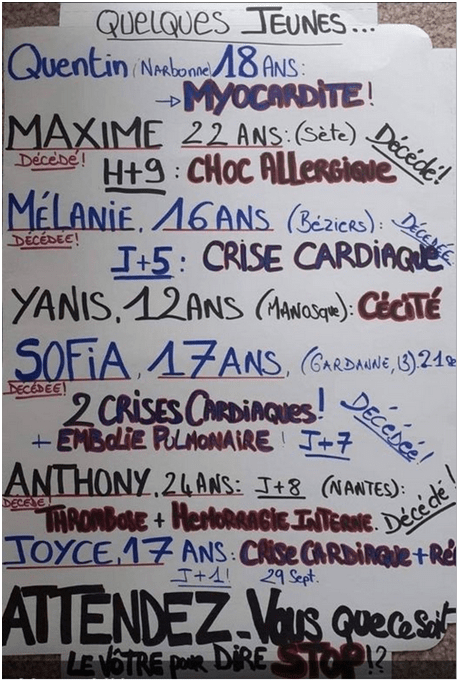 QUELQUES JEUNES...
Quentin (NARbonne) 18 ANS:
→ MYOCARDITE!
MAXIME 22 ANS: (Sète) Décédé!
DÉCÉDÉ!
H+9: CHOC ALLERGIQUE
MÉLANIE, 16 ANS (BÉZIERS): DÉCÉDÉE
DÉCÉDÉE!
J+5: CRISE CARDIAQUE
YANIS, 12 ANS (MANOSQUE): CÉCITÉ
SOFIA, 17 ANS, (GARDANNE, 13). 21
DÉCÉDÉE!
2 CRISES CARDIAQUES! DÉCÉDÉE!
+ EMBOLIE PULMONAIRE! J+7
ANTHONY, 24 ANS: J+8 (NANTES):
DÉCÉDÉ!
THROMBOSE + HEMORRAGIE INTERNE. DÉCÉDÉ!
JOYCE, 17 ANS: CRISE CARDIAQUE + RÉ
J+1! 29 Sept.
ATTENDEZ-VOUS QUE CE SOIT
LE VÔTRE POUR DIRE STOP!?